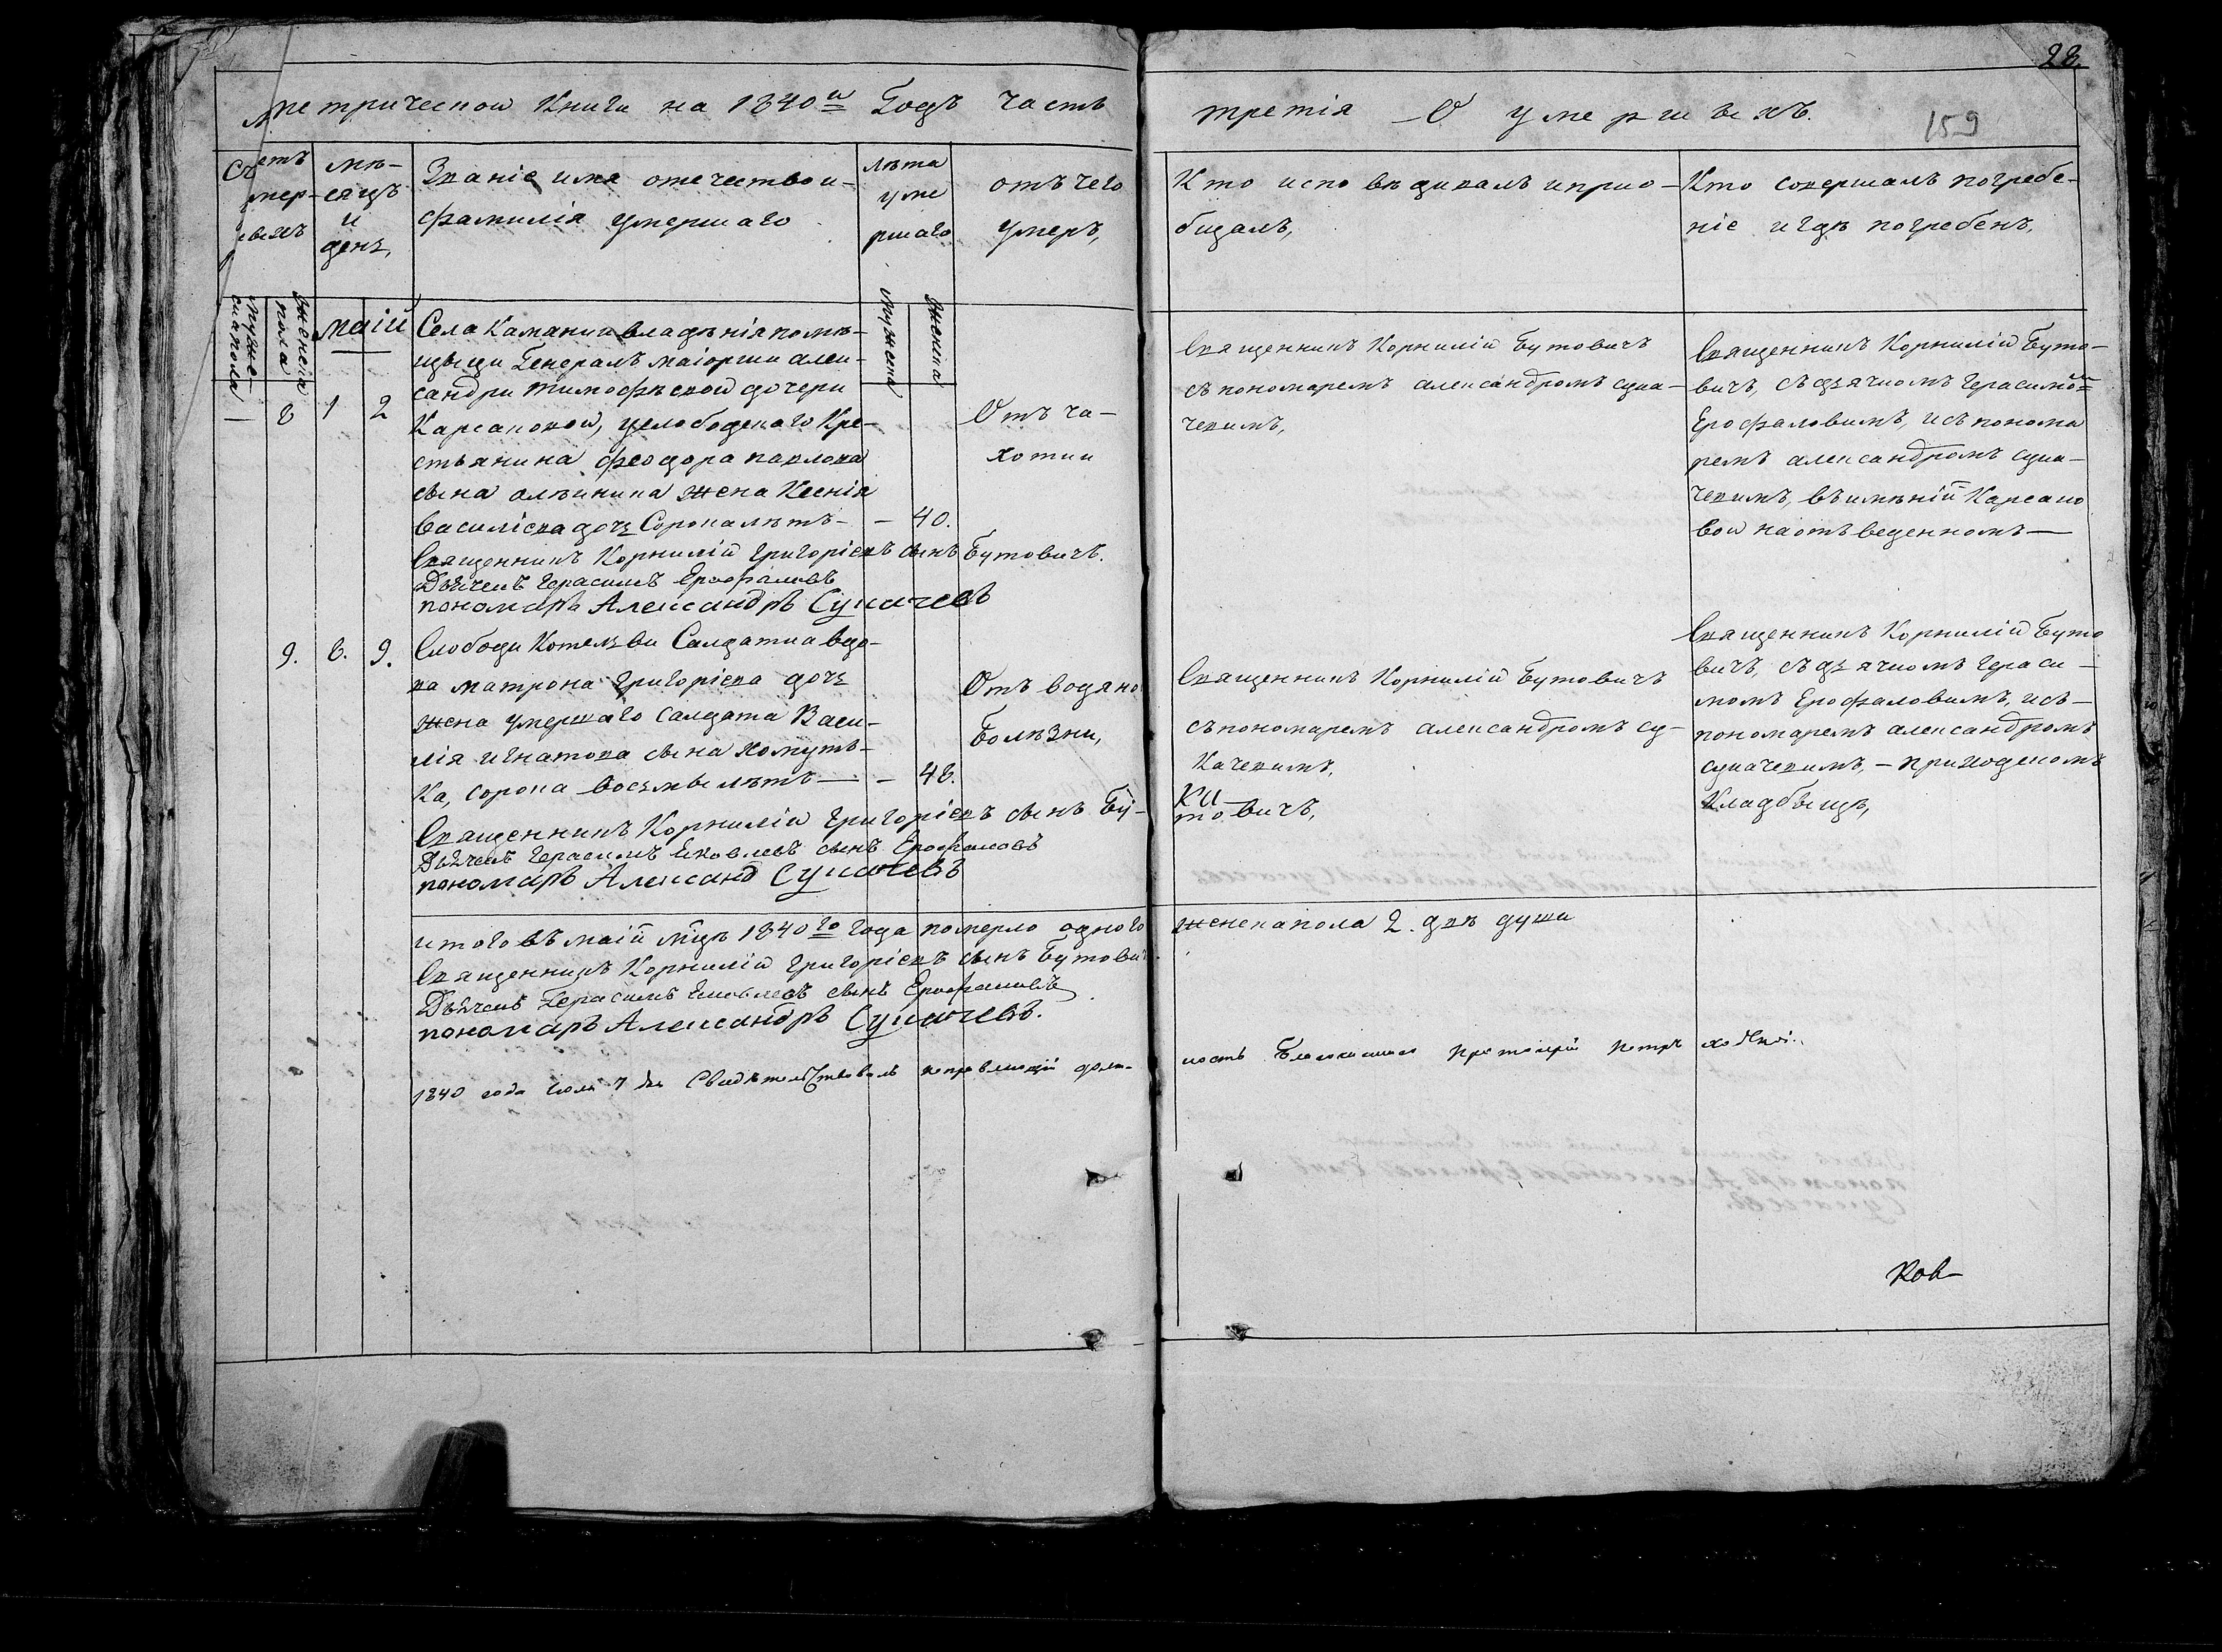 28.
метрической Книги на 1840й Годъ Часть
третія О умершихъ.
159
Счетъ
умер-
шихъ
мѣ-
сяцъ
и
день,
Званіе имя отечество и
фамилія умершаго
лѣта
уме
ршаго
отъ чего
умеръ,
Кто исповѣдивалъ и пріо-
бщалъ,
Кто совершалъ погребе-
ніе и гдѣ погребенъ,
мужес-
ка пола
женска
пола
маій
мужеска
женска
Села Камании владѣнія помѣ-
щыци Генералъ маіорши алек-
сандри тимофѣевой дочери
Карсановой, услободскаго Кре-
стьянина феодора павлова
сына олѣиника жена Ксенія
василіева дочь Сорока лѣтъ -
— 8 1 2
- 40.
Отъ ча-
хотки
Священникъ Корнилій Бутовичъ
съ пономаремъ александромъ сука-
чевимъ,
Священникъ Корнилій Буто-
вичъ, съ дьячкомъ Герасимомъ
Ерофаловимъ, и съ понома
ремъ александромъ сука-
чевимъ, въ имѣній Карсано
вой на отъведенномъ —
Священникъ Корнилій Григоріевъ сынъ Бутовичъ.
Дьячекъ Герасимъ Ерофаловъ
пономаръ Александръ Сукачевъ
9. 6. 9.
Слободи Котельви Салдатка вдо-
ва матрона Григоріева дочь
жена умершаго салдата Васи-
лія игнатова сына хомутѣ-
ка, сорока восьмы лѣтъ —
- 48.
Отъ водяно
Болѣзни,
Священникъ Корнилій Бутовичъ
съ пономаремъ александромъ су-
качевимъ,
Священникъ Корнилій Буто
вичъ, съ дьячкомъ Гераси-
момъ Ерофаловимъ, и съ -
пономаремъ александромъ
сукачевимъ, - приходскомъ
кладбыще,
Священникъ Корнилій Григоріевъ сынъ Бу-
товичъ,
Дьячекъ Герасимъ Яковлевъ сынъ Ерофаловъ
пономаръ Александ Сукачевъ
итого въ маій мцѣ 1840го года померло одного
женска пола 2. двѣ души
Священникъ Корнилій Григоріевъ сынъ Бутови
Дьячекъ Герасимъ Яковлевъ сынъ Ерофаловъ
пономаръ Александръ Сукачевъ.
1840 года Июля 7 дня Свидѣтельствовалъ исправляющій долж-
ность Благочиннаго Протоіерей Петръ
Ков-